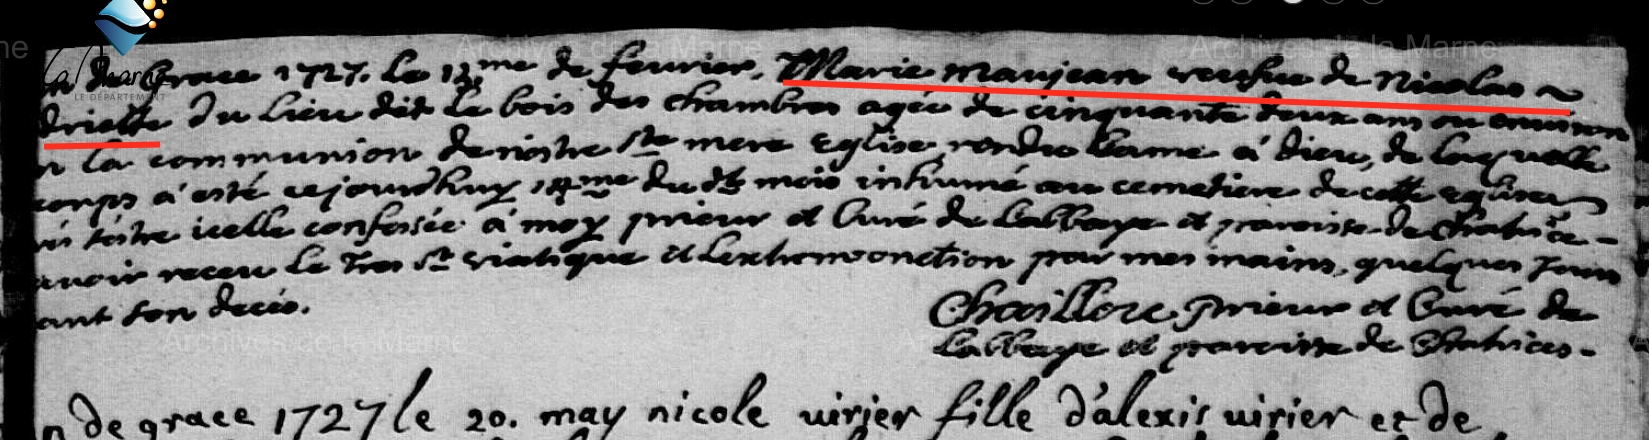 La Marne
LE DÉPARTEMENT
Archives de la Marne
Archives de la Marne
de Grace 1727. Le 13.me de fevrier, Marie Maujean veufue de Nicolas
drielle Du Lieu dit Le bois des chambres agée de cinquante deux ans ou environ
n La communion de nostre Ste mere Eglise, rendu Lame a Dieu, de Laquelle
corps à esté cejourdhuy 14.me du dt mois inhumé au cemetiere de cette eglise
s'estre icelle confessée à moy prieur et Curé de Labbaye et paroisse de Chatrice -
avoir receu Le Tres St Viatique et Lextremoonction par mes mains, quelques Jours
ant son decés.
Chaillore prieur et Curé de
Labbaye et paroisse de Chatrices -
Archives de la Marne
n De grace 1727 le 20. may nicole virier fille d'alexis virier et de